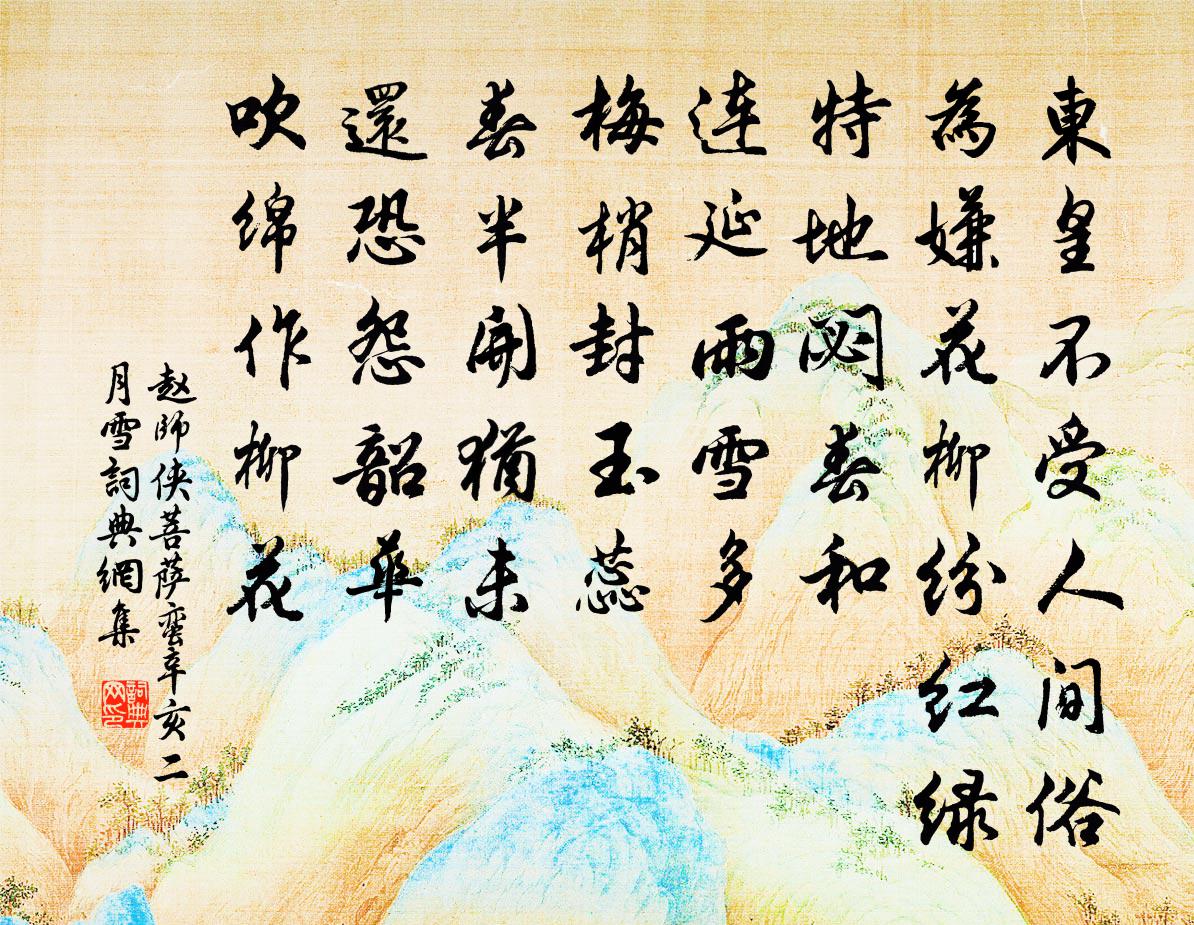 東皇不受人間俗
為嫌花柳紛红绿
特地閟春和
連延雨雪多
梅梢封玉蕊
春半開猶未
還恐怨韶華
吹绵作柳花
赵師侠菩萨蛮辛亥二
月雪詞典網集
詞典
网印